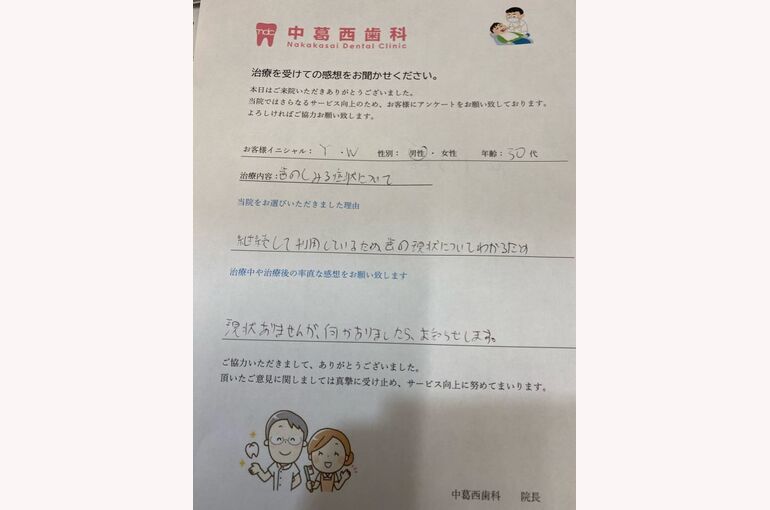 mdc 中葛西歯科
Nakakasai Dental Clinic
治療を受けての感想をお聞かせください。
本日はご来院いただきありがとうございました。
当院ではさらなるサービス向上のため、お客様にアンケートをお願い致しております。
よろしければご協力お願い致します。
お客様イニシャル： Y ・W 性別： 男性 ・ 女性 年齢：30 代
治療内容：歯のしみる症状について
当院をお選びいただきました理由
継続して利用しているため歯の現状についてわかるため
治療中や治療後の率直な感想をお願い致します
現状ありませんが、何かありましたら、お知らせします。
ご協力いただきまして、ありがとうございました。
頂いたご意見に関しましては真摯に受け止め、サービス向上に努めてまいります。
中葛西歯科 院長